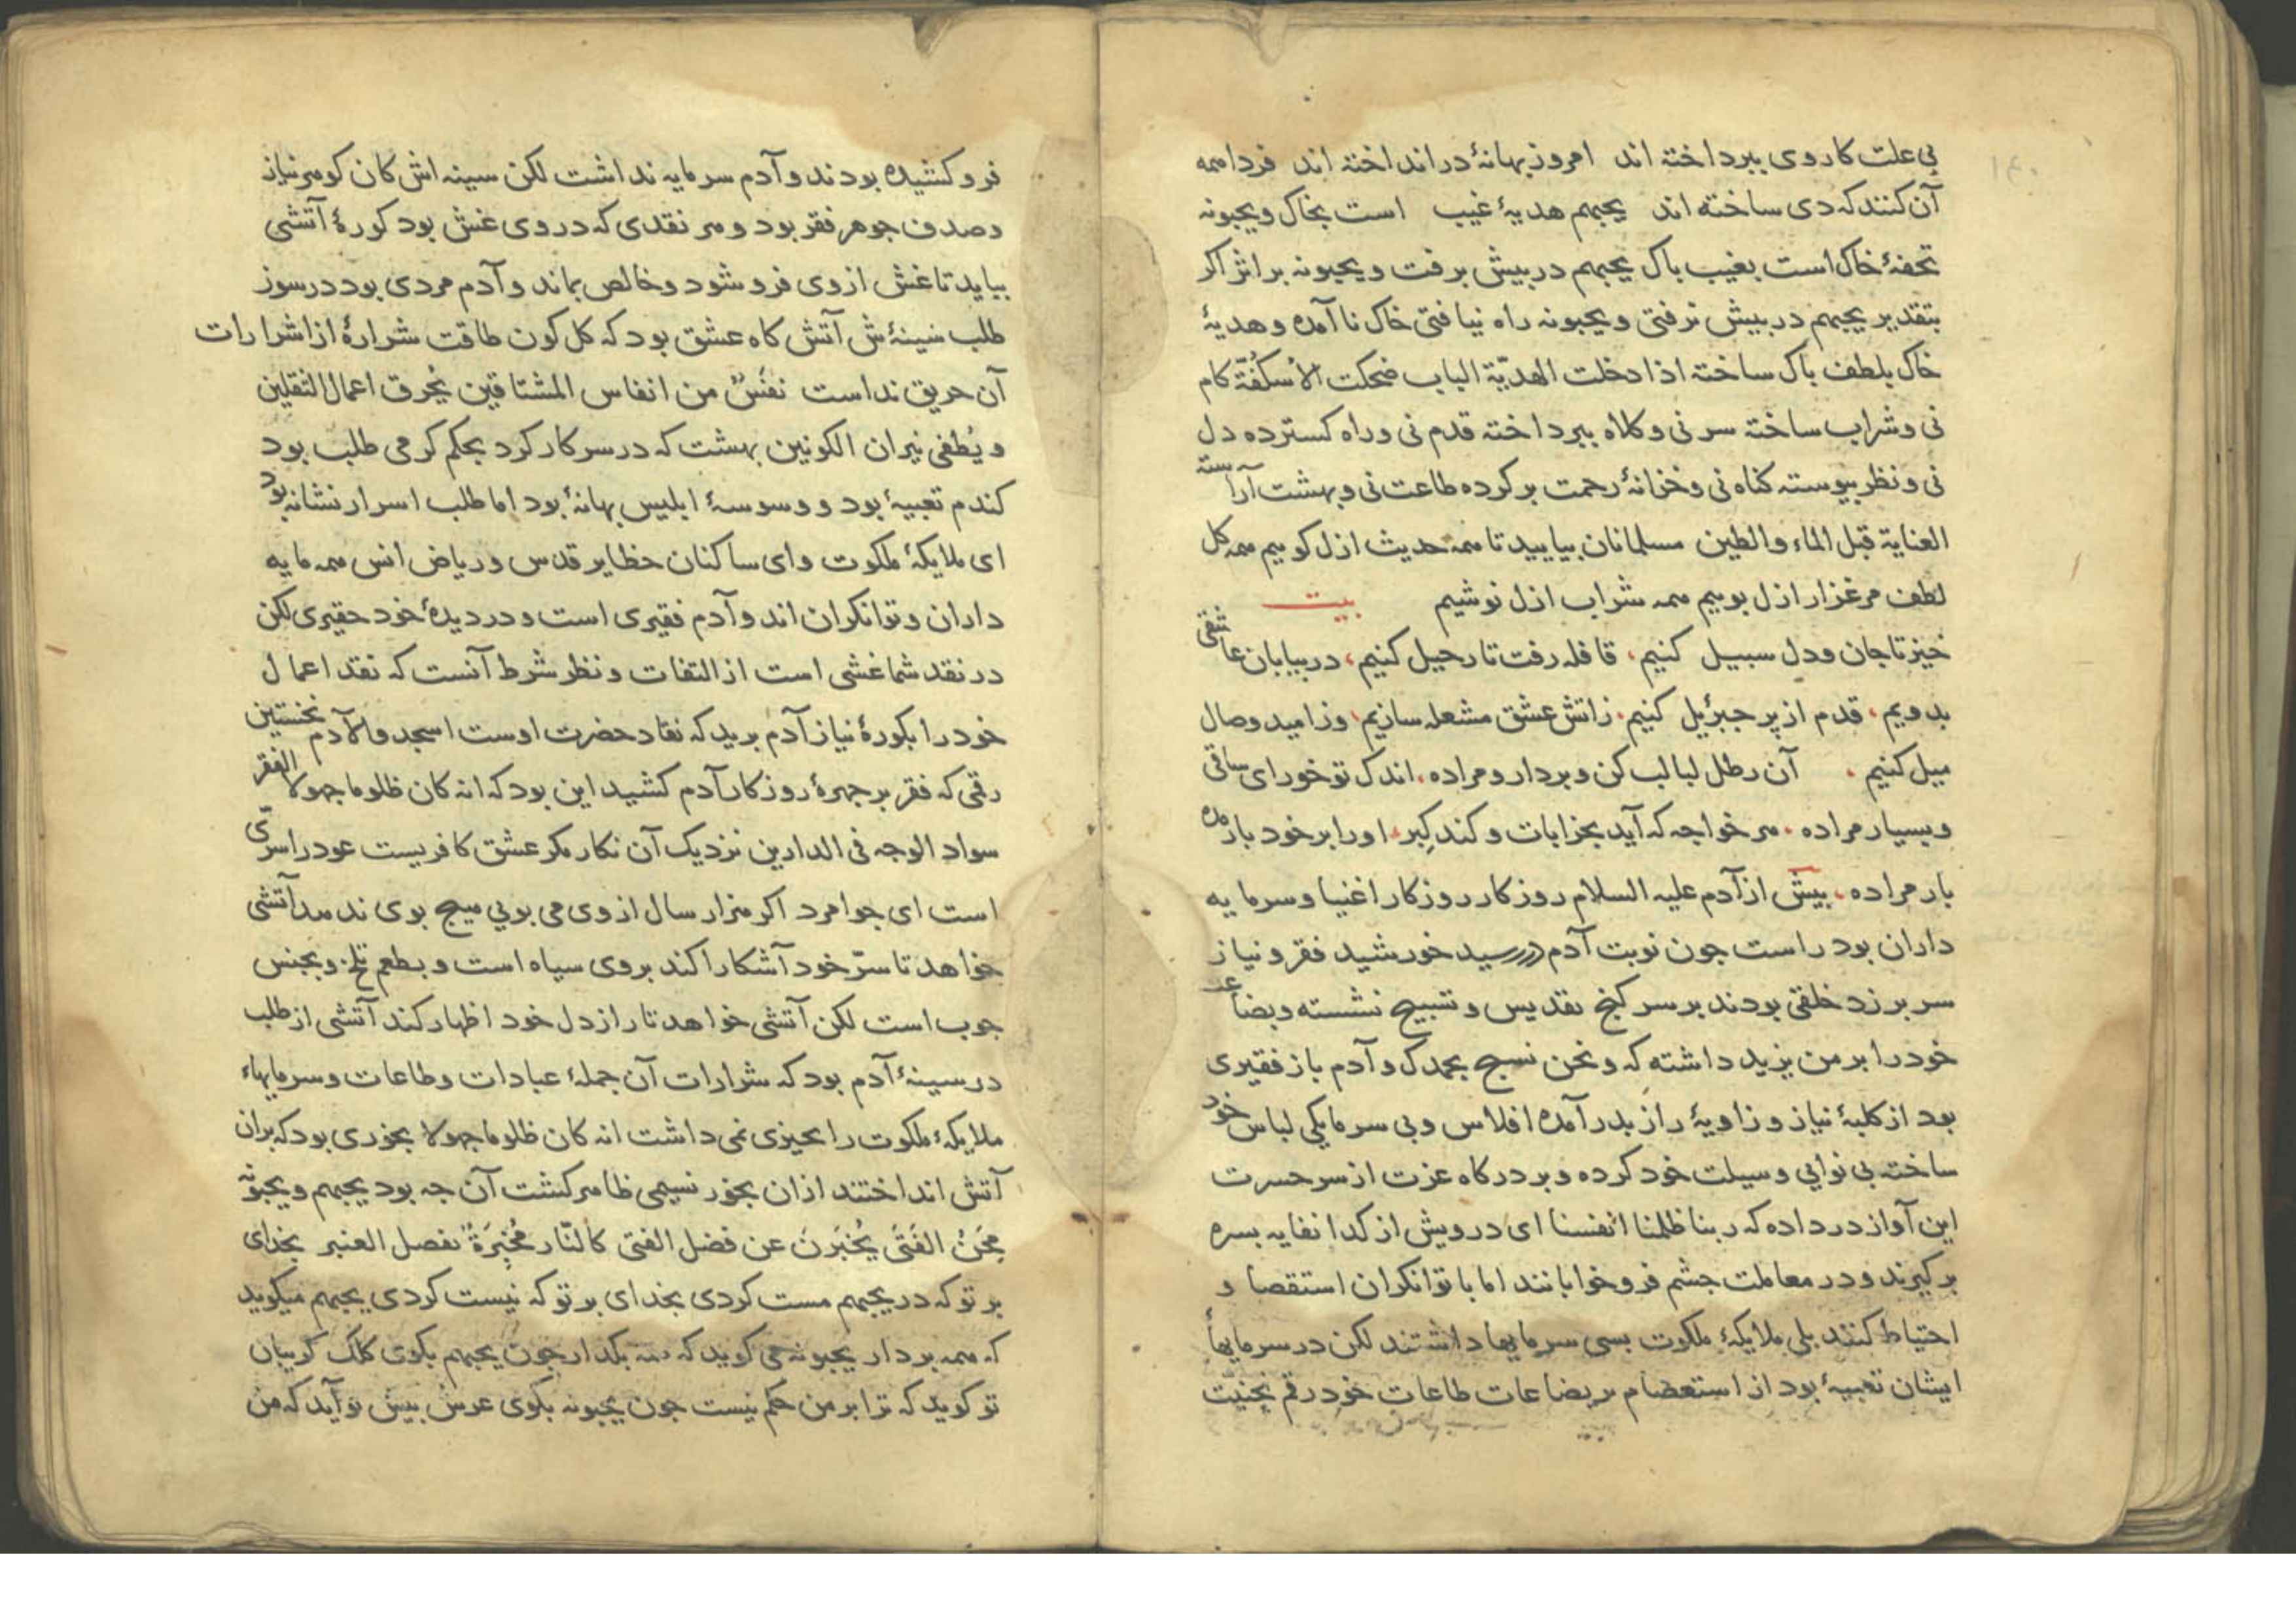 بی علت کاروی ببرداخته اند امروز بهانهٔ در انداخته اند فردا همه
آن کنند که دی ساخته اند یحبهم هدیهٔ غیب است بخاک ویحبونه
تحفهٔ خاک است بغیب باک یحبهم در بیش برفت و یحبونه بر اثر اکر
بتقدیر یحبهم در بیش نرفتی و یحبونه راه نیافتی خاک نا آمده و هدیهٔ
خاک بلطف باک ساخته اذا دخلت الهدیّة الباب ضحکت الأُسکُفّة کام
نی وشراب ساخته سر نی وکلاه ببرداخته قدم نی وراه کسترده دل
نی ونظر بیوسته کناه نی وخزانهٔ رحمت بر کرده طاعت نی وبهشت آراسته
العنایة قبل الماء والطین مسلمانان بیایید تا همه حدیث ازل کوییم همه کل
لطف مرغزار ازل بوییم همه شراب ازل نوشیم بیت
خیز تا جان ودل سبیل کنیم، قافله رفت تا رحیل کنیم، در بیابان عاشقی
بدویم، قدم از بر جبرٔیل کنیم، زاتش عشق مشعله سازیم، وز امید وصال
میل کنیم . آن رطل لبالب کن وبردار ومراده، اندک تو خور ای ساقی
وبسیار مراده . هر خواجه که آید بخرابات وکند کِبر، اورا بر خود بار مده
بار مراده، بیش از آدم علیه السلام روزکار روزکار اغنیا وسرمایه
داران بود راست جون نوبت آدم در رسید خورشید فقر ونیاز
سر بر زد خلقی بودند بر سر کنج تقدیس وتسبیح نشسته وبضاعت
خود را بر من یزید داشته که ونحن نسبح بحمدک وآدم باز فقیری
بود از کلبهٔ نیاز وزاویهٔ راز بدر آمده افلاس وبی سرمایکی لباس خود
ساخته بی نوایی وسیلت خود کرده وبر درکاه عزت از سر حسرت
این آواز در داده که ربنا ظلمنا انفسنا ای درویش از کدا نفایه بسره
برکیرند ودر معاملت جشم فرو خوابانند اما با توانکران استقصا و
احتیاط کنند بلی ملایکهٔ ملکوت بسی سرمایها داشتند لکن در سرمایهٔا
ایشان تعبیهٔ بود از استعضام بر بضاعات طاعات خود رقم نحنیّت
فرو کشیده بودند وآدم سرمایه نداشت لکن سینه اش کان کوهر نیاز
وصدف جوهر فقر بود وهر نقدی که در وی غش بود کورهٔ آتشی
بباید تا غش از وی فرو شود وخالص بماند وآدم مردی بود در سوز
طلب سینهٔ ش آتش کاه عشق بود که کل کون طاقت شرارهٔ از اشرارات
آن حریق نداست نفَسٌ من انفاس المشتاقین یُحرق اعمال الثقلین
ویُطفی نیران الکونین بهشت که در سر کار کرد بحکم کرمی طلب بود
کندم تعبیهٔ بود ووسوسهٔ ابلیس بهانهٔ بود اما طلب اسرار نشانه بود
ای ملایکهٔ ملکوت وای ساکنان حظایر قدس وریاض انس همه مایه
داران وتوانکران اند وآدم فقیری است ودر دیدهٔ خود حقیری لکن
در نقد شما غشی است از التفات ونظر شرط آنست که نقد اعمال
خود را بکورهٔ نیاز آدم برید که نقاد حضرت اوست اسجدوا لآدم نخستین
رقمی که فقر بر جهرهٔ روزکار آدم کشید این بود که انه کان ظلوما جهولا الفقر
سواد الوجه فی الدارین نزدیک آن نکار مکر عشق کافریست عود را سرّی
است ای جوامرد اکر هزار سال از وی می بویی هیج بوی ندهد آتشی
خواهد تا سرّ خود آشکارا کند بروی سیاه است وبطعم تلخ وبجنس
جوب است لکن آتشی خواهد تا راز دل خود اظهار کند آتشی از طلب
در سینهٔ آدم بود که شرارات آن جملهٔ عبادات وطاعات وسرمایهاء
ملایکهٔ ملکوت را بجیزی نمی داشت انه کان ظلوما جهولا بخوری بود که بران
آتش انداختند ازان بخور نسیمی ظاهر کشت آن جه بود یحبهم ویحبونه
مِحَنُ الفَتَی یُخبَرنَ عن فضل الفتی کالنّار مُخبِرَةٌ بفصل العنبر بخدای
بر تو که در یحبهم مست کردی بخدای بر تو که نیست کردی یحبهم میکوید
که همه بردار یحبونه می کوید که همه بکدار جون یحبهم بکوی کلک کریبان
تو کوید که ترا بر من حکم نیست جون یحبونه بکوی عرش بیش تو آید که من